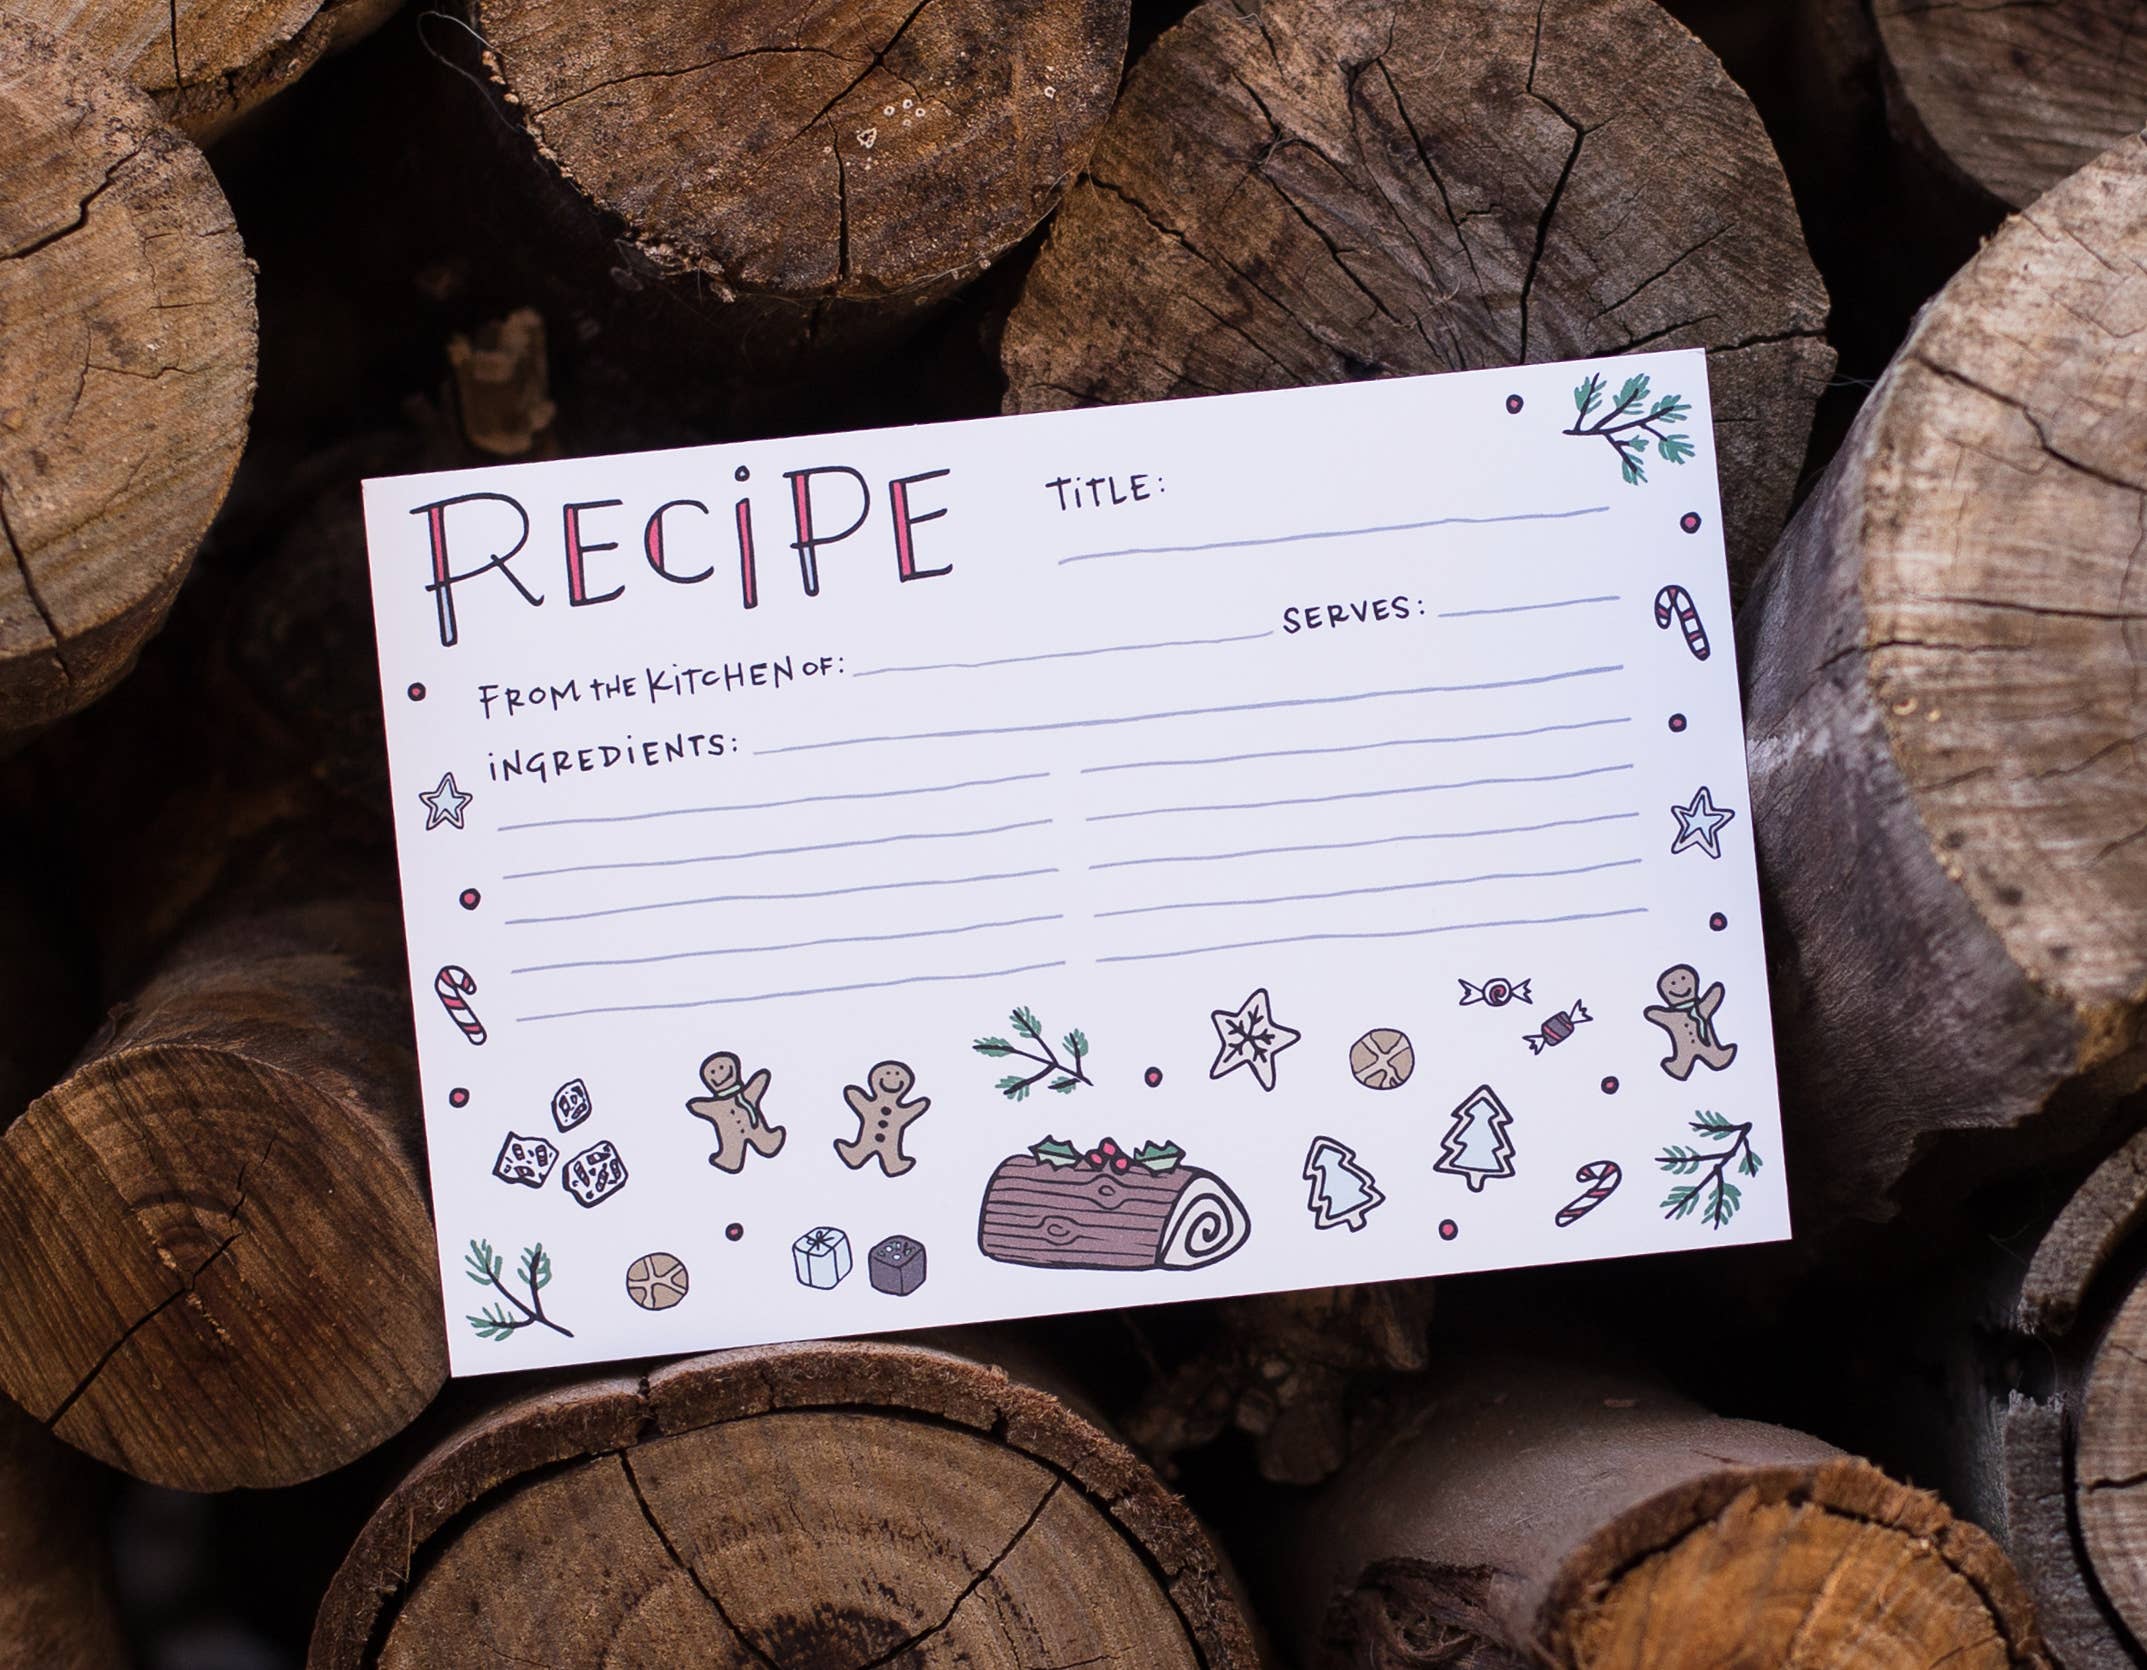 RECiPE
TiTLE:
SERVES:
FROM THE KiTCHEN OF:
iNGREDiENTS: